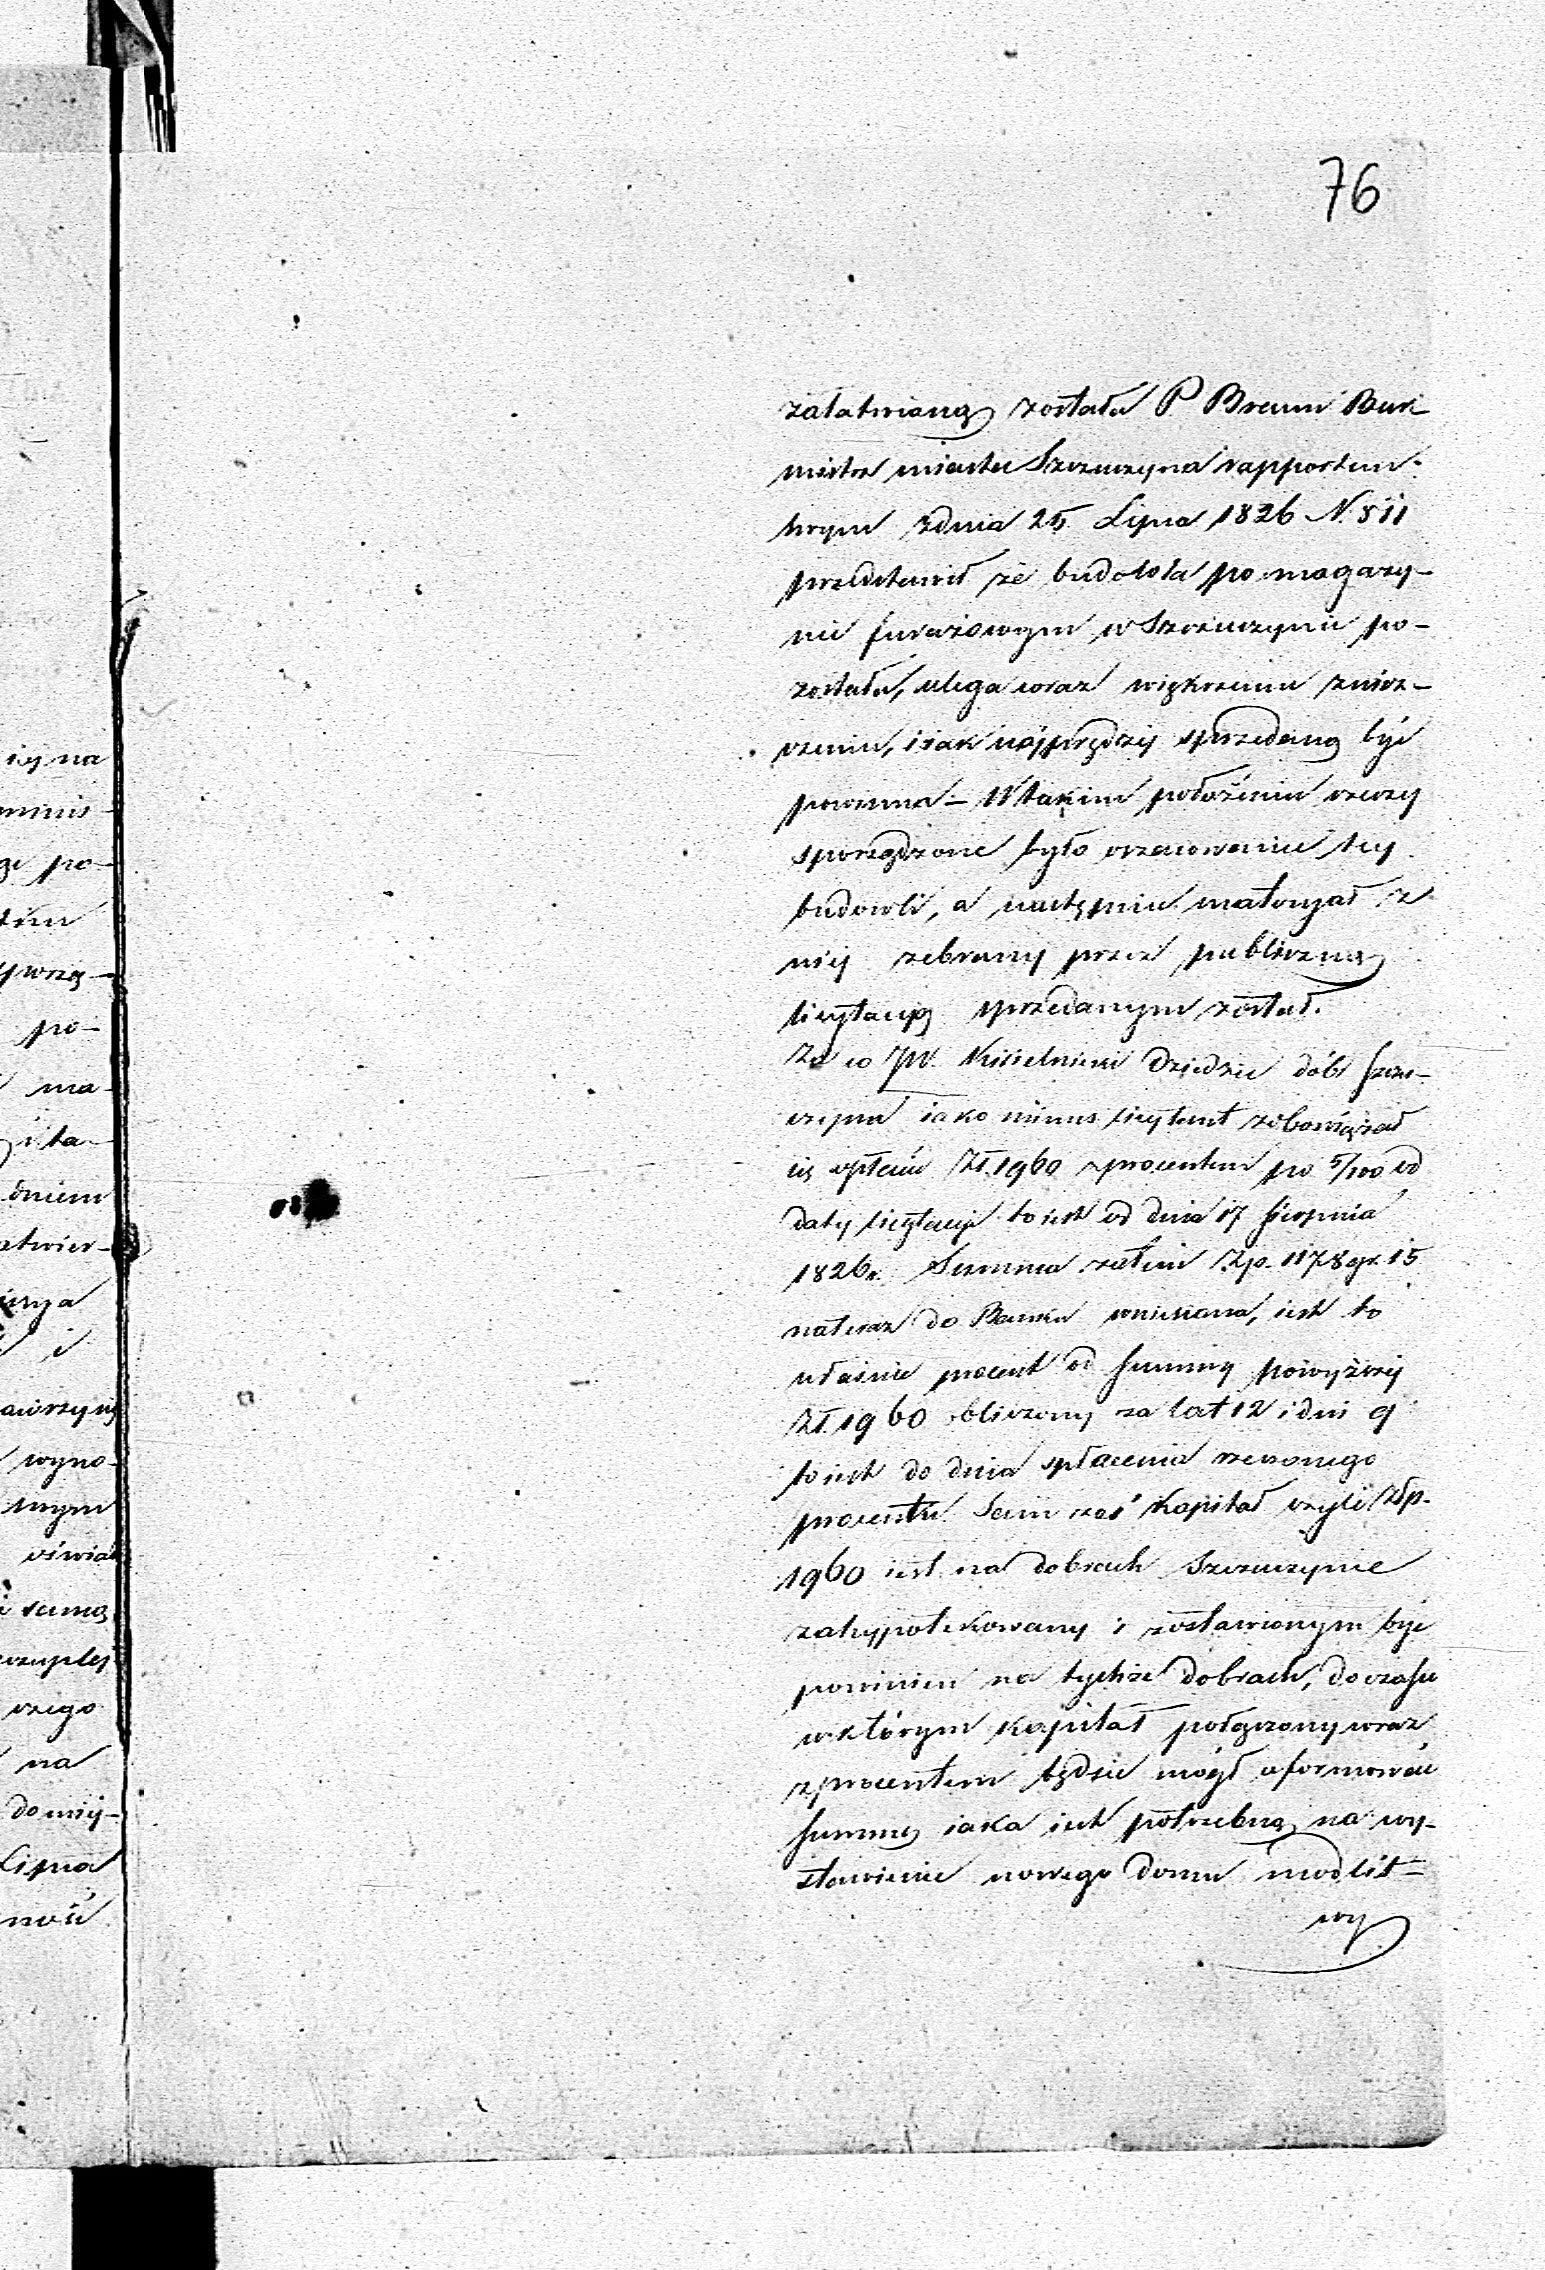 76
załatwioną została P Braun Bur-
mistrz miasta Szczuczyna rapportem
swym zdnia 25 Lipca 1826 N. 811
przedstawił że budowla po magazy-
nie furażowym w Szczuczynie po-
została, ulega coraz większemu znisz-
czeniu, i jak najprędzej sprzedaną być
powinna – W takim położeniu rzeczy
sporządzone było oszacowanie tey
budowli, a następnie materyał z
niej zebrany przez publiczną
licytacyą sprzedanym został.
Za co JW. Kisielnicki Dziedzic dóbr Szczu-
czyna iako minus licytant zobowiązał
się opłacać Zł. 1960 z procentem po 5/100 od
daty licytacyi to iest od dnia 17 Sierpnia
1826 r. Summa zatem Zp. 1178 gr. 15
nateraz do Banku wniesiona, iest to
właśnie procent od Summy powyższej
Zł. 1960 obliczony za lat 12 i dni 9
to iest do dnia spłacenia rzeczonego
procentu. Sam zaś Kapitał czyli Złp.
1960 iest na dobrach Szczuczynie
zahypotekowany i zostawionym być
powinien na tychże dobrach, do czasu
w którym kapitał połączony wraz
z procentem będzie mógł uformować
Summę iaka iest potrzebną na wy-
stawienie nowego domu modlit-
wy
iey na
po-
po-
ma-
dniem
i
wyno-
samą
czego
na
Lipca